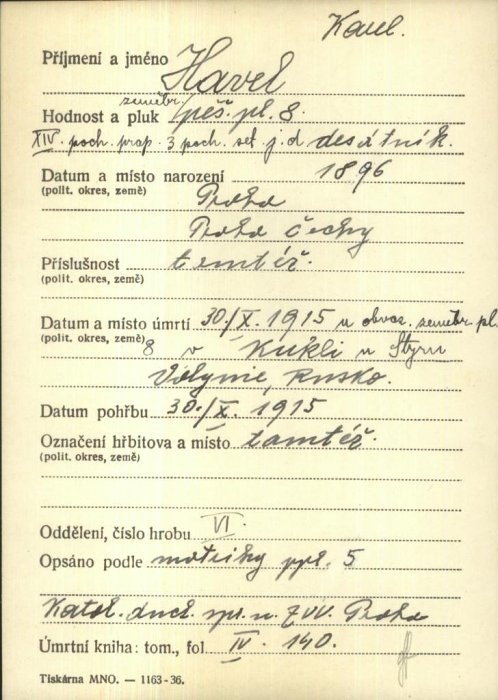 Karel.
Příjmení a jméno Havel
zeměbr.
Hodnost a pluk pěš. pl. 8.
XIV. poch. prap. 3 poch. set. j. d desátník.
Datum a místo narození 1896
(polit. okres, země)
Praha
Praha Čechy
Příslušnost tamtéž.
(polit. okres, země)
Datum a místo úmrtí 30/X. 1915 u obvaz. zeměbr. pl.
(polit. okres, země) 8 v Kukli u Styru
Volynie, Rusko.
Datum pohřbu 30./X. 1915
Označení hřbitova a místo tamtéž.
(polit. okres, země)
Oddělení, číslo hrobu VI.
Opsáno podle matriky ppl. 5
Katol. duch. spr. u ZVV. Praha
Úmrtní kniha: tom., fol IV. 140.
Tiskárna MNO. — 1163-36.